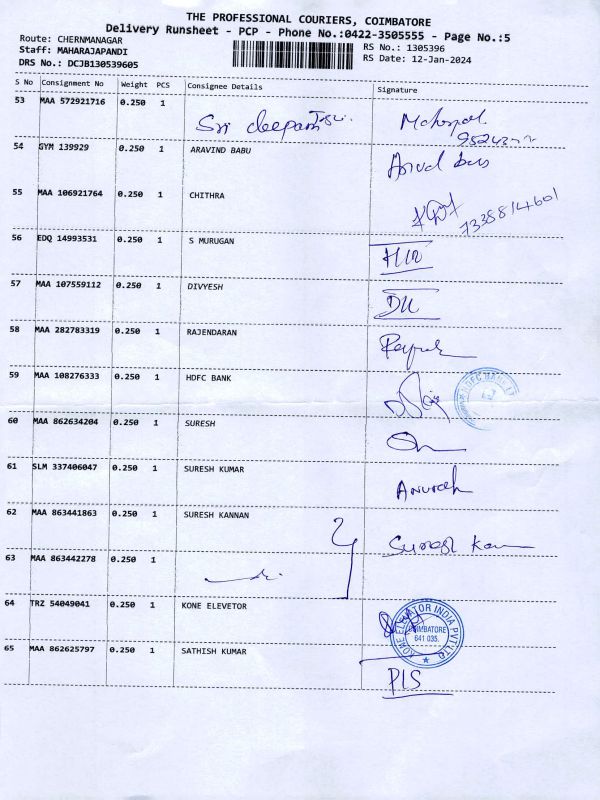 THE PROFESSIONAL COURIERS, COIMBATORE
Delivery Runsheet - PCP - Phone No.:0422-3505555 - Page No.:5
Route: CHERNMANAGAR
RS No.: 1305396
Staff: MAHARAJAPANDI
RS Date: 12-Jan-2024
DRS No.: DCJB130539605
S No Consignment No Weight PCS Consignee Details Signature
53 MAA 572921716 0.250 1 Sri deepam
54 GYM 139929 0.250 1 ARAVIND BABU
55 MAA 106921764 0.250 1 CHITHRA 7338814601
56 EDQ 14993531 0.250 1 S MURUGAN
57 MAA 107559112 0.250 1 DIVYESH
58 MAA 282783319 0.250 1 RAJENDARAN
59 MAA 108276333 0.250 1 HDFC BANK
60 MAA 862634204 0.250 1 SURESH
61 SLM 337406047 0.250 1 SURESH KUMAR
62 MAA 863441863 0.250 1 SURESH KANNAN Suresh
63 MAA 863442278 0.250 1
64 TRZ 54049041 0.250 1 KONE ELEVETOR KONE ELEVATOR INDIA PVT LTD COIMBATORE 641 035.
65 MAA 862625797 0.250 1 SATHISH KUMAR